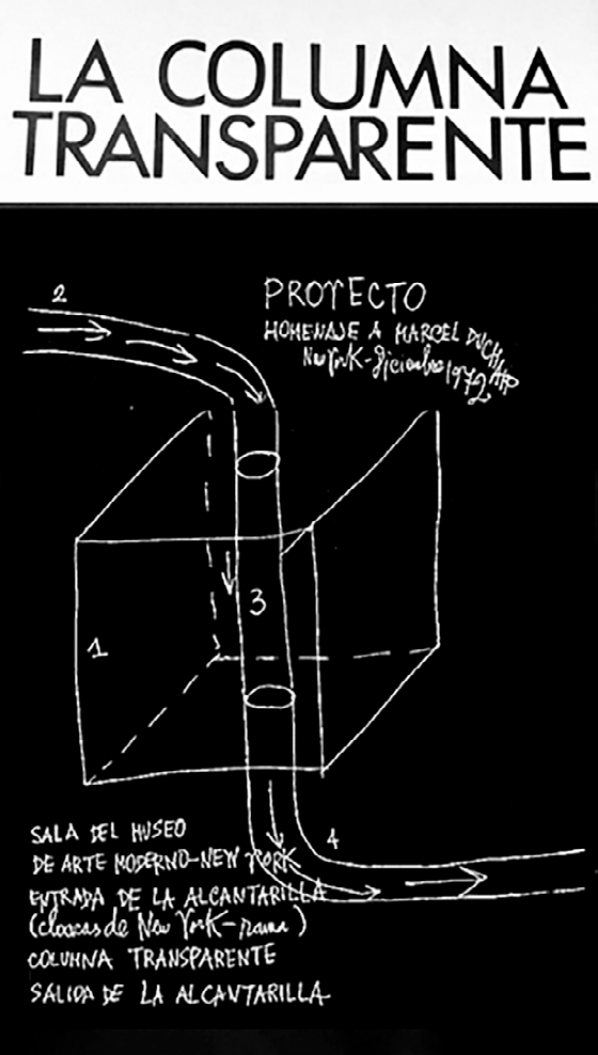 LA COLUMNA
TRANSPARENTE
2
PROYECTO
HOMENAJE A MARCEL DUCHAMP
New York-Diciembre 1972
3
1
4
SALA DEL MUSEO
DE ARTE MODERNO-NEW YORK
ENTRADA DE LA ALCANTARILLA
(cloacas de New York-
COLUMNA TRANSPARENTE
SALIDA DE LA ALCANTARILLA